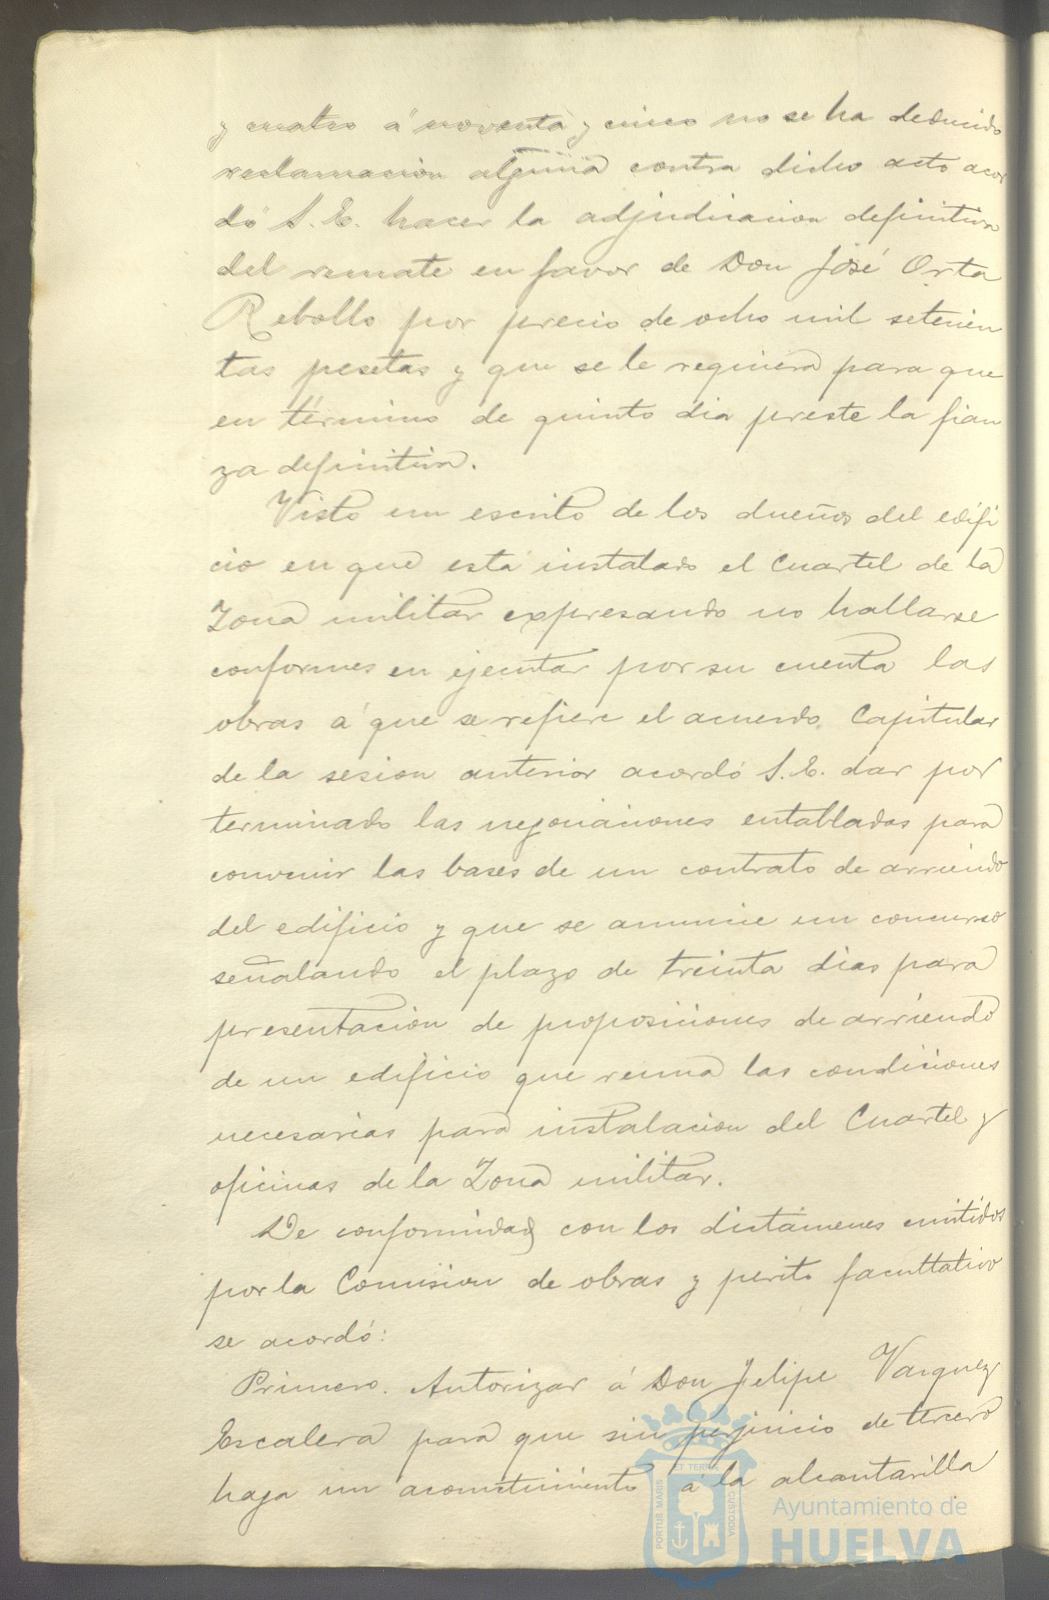 y cuatro á noventa y cinco no se ha deducido
reclamacion alguna contra dicho acto acor
dó S. E. hacer la adjudicacion definitiva
del remate en favor de Don José Orta
Rebollo por precio de ocho mil setecien
tas pesetas y que se le requiera para que
en término de quinto dia preste la fian
za definitiva.
Visto un escrito de los dueños del edifi
cio en que está instalado el Cuartel de la
Zona militar expresando no hallarse
conformes en ejecutar por su cuenta las
obras á que se refiere el acuerdo Capitular
de la sesion anterior acordó S. E. dar por
terminado las negociaciones entabladas para
convenir las bases de un contrato de arriendo
del edificio y que se anuncie un concurso
señalando el plazo de treinta dias para
presentacion de proposiciones de arriendo
de un edificio que reuna las condiciones
necesarias para instalacion del Cuartel y
oficinas de la Zona militar.
De conformidad con los dictámenes emitidos
por la Comision de obras y perito facultativo
se acordó:
Primero. Autorizar á Don Felipe Vazquez
Escalera para que sin perjuicio de tercero
haga un acometimiento á la alcantarilla
PORTUS MARIS ET TERRAE CUSTODIA
Ayuntamiento de
HUELVA